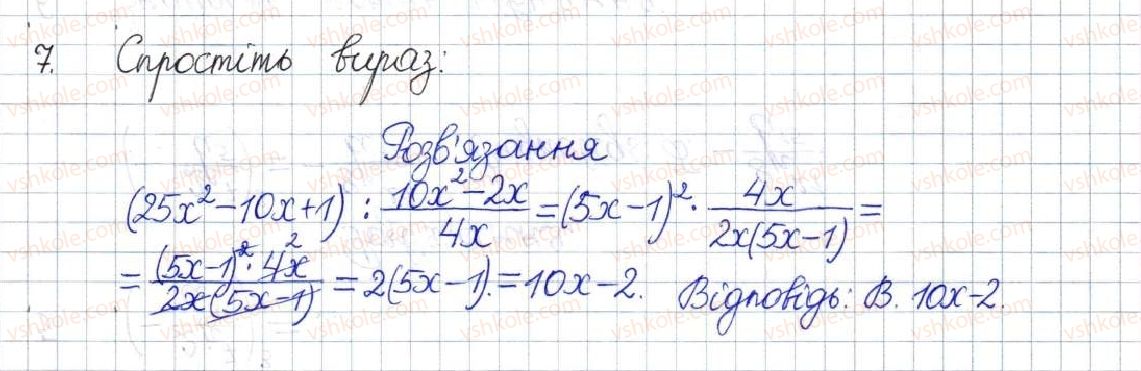 7. Спростіть вираз:
Розв'язання
(25x² − 10x + 1) : \frac{10x² − 2x}{4x} = (5x − 1)² · \frac{4x}{2x(5x − 1)} =
= \frac{(5x − 1)² · 4x}{2x(5x − 1)} = 2(5x − 1). = 10x − 2. Відповідь: В. 10x − 2.